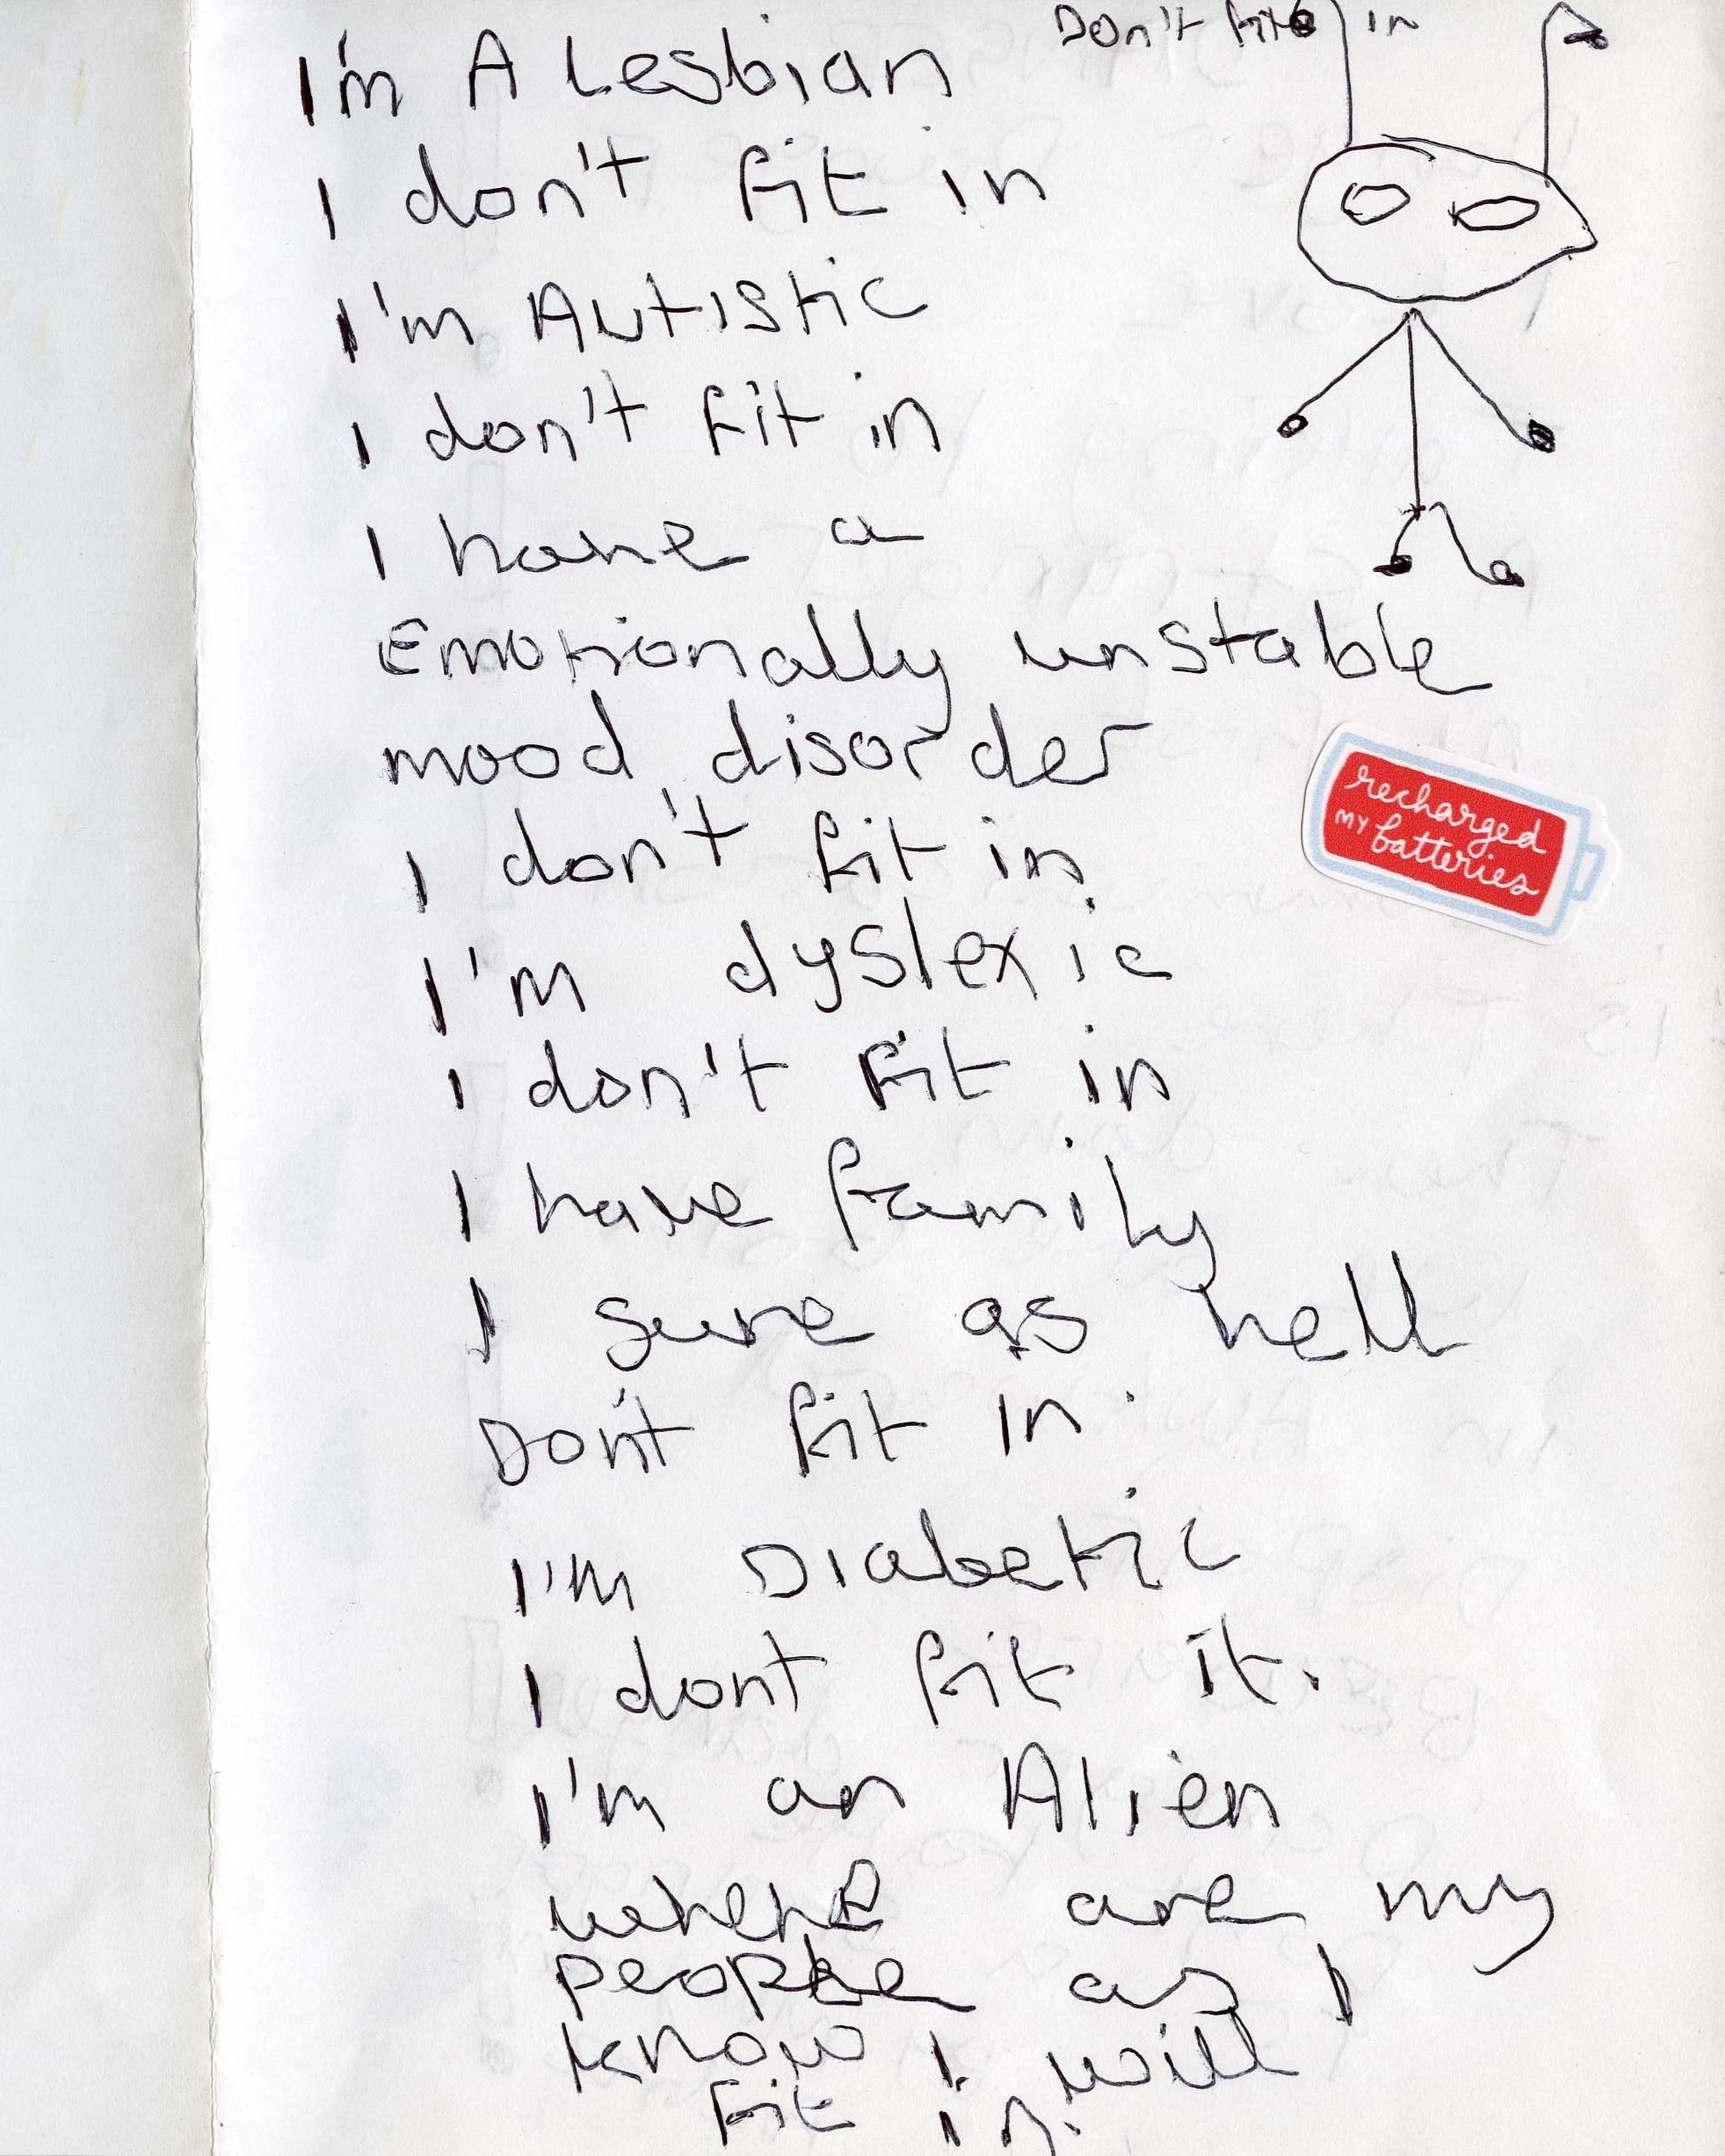 Don't fit in
I'm A Lesbian
I don't fit in
I'm Autistic
I don't fit in
I have a
Emotionally unstable
mood disorder
recharged
my batteries
I don't fit in
I'm dyslexic
I don't fit in
I have family
I sure as hell
Don't fit in.
I'm Diabetic
I dont fit it.
I'm an Alien
where are my
people as I
know I will
fit in.